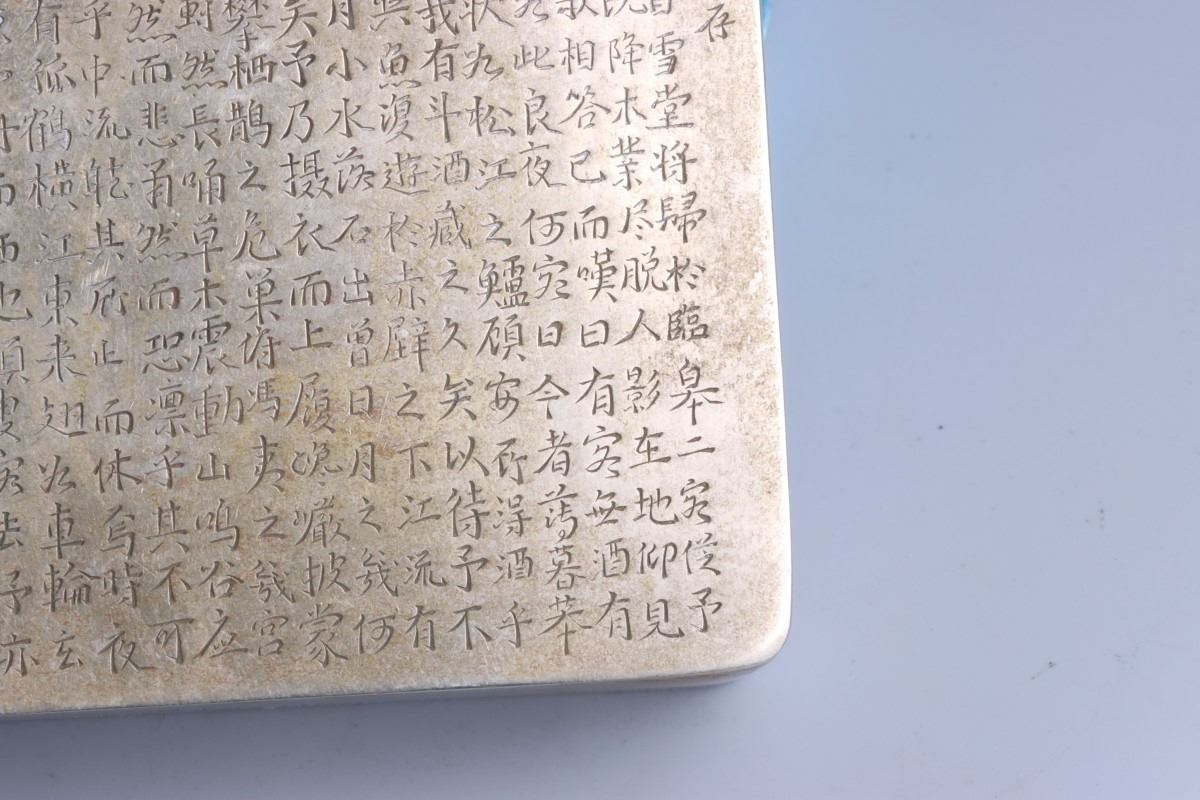 存
雪堂将歸於臨皋二客從予
降木業尽脱人影在地仰見
相答已而嘆曰有客無酒有
此良夜何客曰今者薄暮举
状为松江之鱸顧安所得酒乎
我有斗酒藏之久矣以待予不
與魚復遊於赤壁之下江流有
月小水落石出曾日月之幾何
矣予乃摄衣而上履巉巌披蒙
攀栖鵲之危巢俯馮夷之幾宫
然長嘯草木震動山鳴谷应
然而悲肅然而恐凛乎其不可
乎中流聽其所止而休焉時夜
有孤鶴横江東来翅如車輪玄
而西也須臾客去予亦